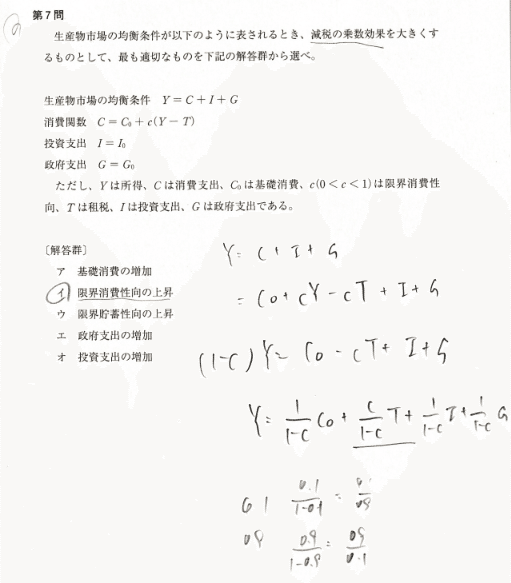 第7問
生産物市場の均衡条件が以下のように表されるとき、減税の乗数効果を大きくす
るものとして、最も適切なものを下記の解答群から選べ。
生産物市場の均衡条件　Y＝C＋I＋G
消費関数　C＝C₀＋c(Y－T)
投資支出　I＝I₀
政府支出　G＝G₀
ただし、Yは所得、Cは消費支出、C₀は基礎消費、c(0＜c＜1)は限界消費性
向、Tは租税、Iは投資支出、Gは政府支出である。
〔解答群〕
ア　基礎消費の増加
イ　限界消費性向の上昇
ウ　限界貯蓄性向の上昇
エ　政府支出の増加
オ　投資支出の増加
Y= C+I+G
= C0+cY-cT+I+G
(1-C)Y= C0-cT+I+G
Y= 1/1-C C0+ C/1-C T+ 1/1-C I+ 1/1-C G
0.1 0.1/1-0.1 = 0.1/0.9
0.9 0.9/1-0.9 = 0.9/0.1